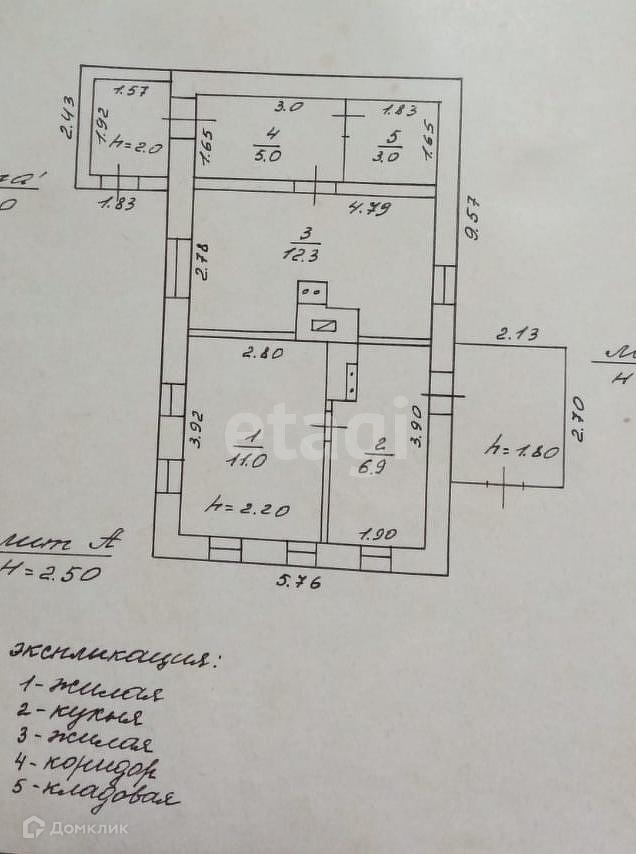 1.57
2.43
1.92
h=2.0
1.83
3.0
4
5.0
1.65
1.83
5
3.0
1.65
4.79
9.57
3
12.3
2.78
2.80
2.13
3.92
1
11.0
h=2.20
etagi
2
6.9
3.90
1.90
h=1.80
2.70
5.76
лит А
H=2.50
экспликация:
1-жилая
2-кухня
3-жилая
4-коридор
5-кладовая
Домклик